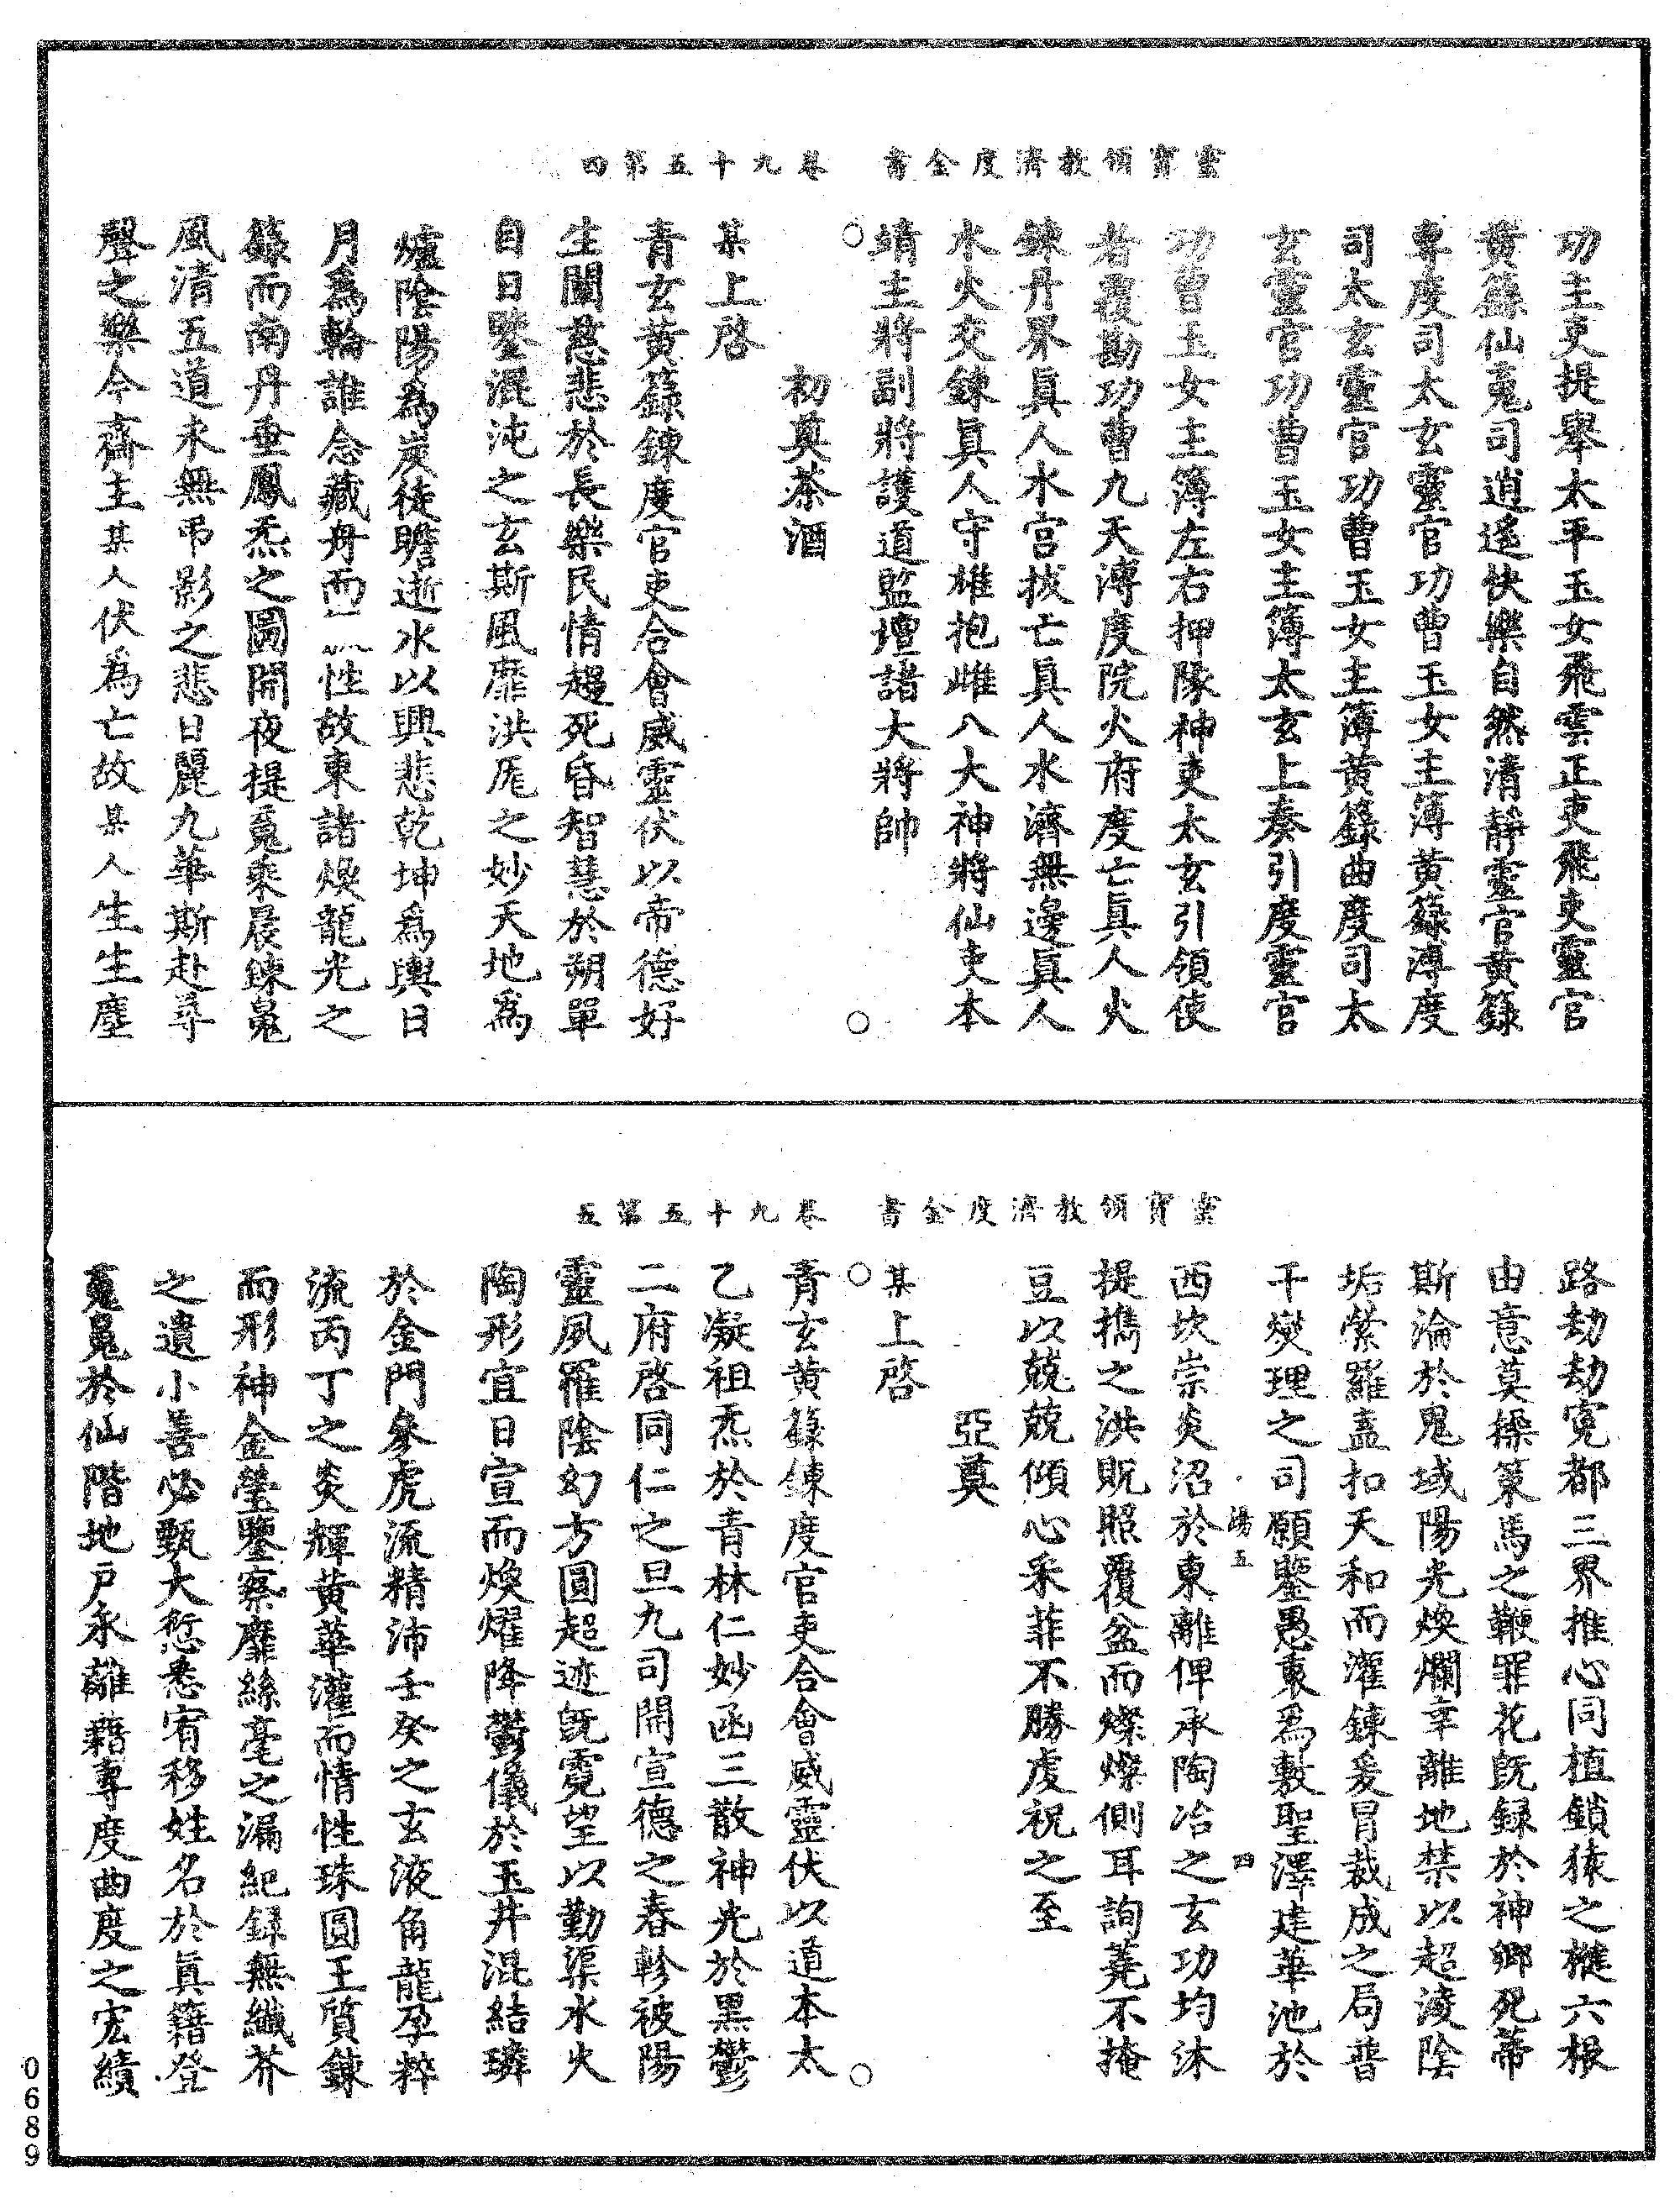 靈寶領教濟度金書　卷九十五第四
功主吏提舉太平玉女飛雲正吏飛吏靈官
黃籙仙䰟司逍遙快樂自然清靜靈官黃籙
專度司太玄靈官功曹玉女主簿黃籙溥度
司太玄靈官功曹玉女主簿黃籙曲度司太
玄靈官功曹玉女主簿太玄上奏引度靈官
功曹玉女主簿左右押隊神吏太玄引領使
者覆勘功曹九天溥度院火府度亡眞人火
鍊丹界眞人水宮拔亡眞人水濟無邊眞人
水火交鍊眞人守雄抱雌八大神將仙吏本
靖主將副將護道監壇諸大將帥
初奠茶酒
某上啓
青玄黃籙鍊度官吏合會威靈伏以帝德好
生闡慈悲於長樂民情趨死昏智慧於朔單
自日鑒混沌之玄斯風靡洪厖之妙天地爲
爐陰陽爲炭徒瞻逝水以興悲乾坤爲輿日
月爲輪誰念藏舟而一性故東諸煥龍光之
籙而南丹垂鳳炁之圖開夜提䰟乘晨鍊䰟
風清五道未無弔影之悲日麗九華斯赴尋
聲之樂今齋主某人伏爲亡故某人生生塵
靈寶領教濟度金書　卷九十五第五
路劫劫寃都三界推心同植鎖猿之檖六根
由意莫操策馬之鞭罪花旣録於神鄉死蔕
斯淪於鬼域陽光煥爛幸離地禁以超淩陰
垢縈羅盍扣天和而濯鍊爰冒裁成之局普
干燮理之司願鑒愚衷爲敷聖澤建華池於
湯五　四
西坎崇炎沼於東離俾承陶冶之玄功均沐
提攜之洪貺照覆盆而燦燦側耳詢蕘不掩
豆以兢兢傾心釆菲不勝虔祝之至
亞奠
某上啓
青玄黃籙鍊度官吏合會威靈伏以道本太
乙凝祖炁於青林仁妙函三散神光於黑鬱
二府啓同仁之旦九司開宣德之春軫被陽
靈夙罹陰幻方圓超迹旣霓望以勤渠水火
陶形宜日宣而煥耀降鬱儀於玉井混結璘
於金門參虎流精沛壬癸之玄液角龍孕粹
流丙丁之炎輝黃華灌而情性珠圓王質鍊
而形神金瑩鑒察靡絲毫之漏紀録無纖芥
之遺小善必甄大愆悉宥移姓名於眞籍登
䰟䰟於仙階地戸永離籍專度曲度之宏績
0689